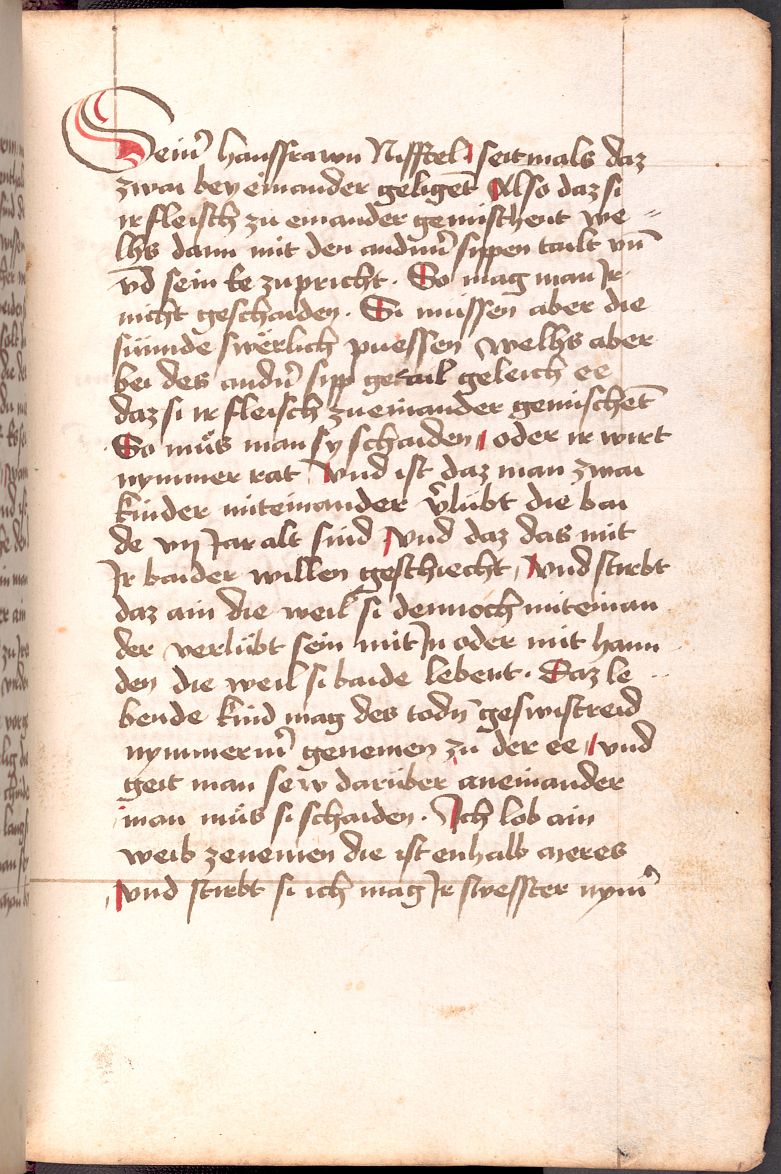 Seinr̄ hausfrawn Nifftel / seitmals daz
zwai bey einander geligēt Also daz si
ir fleisch zu einander gemischent we=
lhs dann mit den andnr̄ sippen tailt vn̄
vn̄d sein ke zupricht. So mag man Ir
nicht geschaiden. Si müssen aber die
sünnde swërlich puessen welhs aber
bei des andn̄ sipp getail geleich ee
daz si ir fleisch zueinander gemischēt
So müs man sy schaiden / oder ir wirt
nymmer rat / vnd ist daz man zwai
kinder miteinander v̄lübt die bai
de vij Jar alt sind / vnd daz das mit
Ir baider willen geschiecht / vnd stirbt
daz ain die weil si dennoch miteinan
der verlübt sein mit In oder mit hann
den die weil si baide lebent. Daz le
bende kind mag des todn̄ geswistreid
nymmermr̄ genemen zu der ee / vnd
geit man sew darüber aneinander
man müs si schaiden. Ich lob ain
weib zenemen die ist enhalb meres
/ vnd stirbt si ich mag Ir swesster nym̄